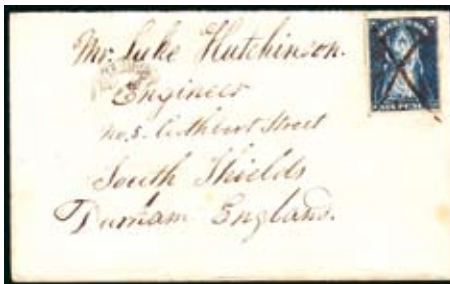 Mr. Luke Hutchinson.
Engineer
No. 5. Cuthbert Street
South Shields
Durham England.
SIX PENCE